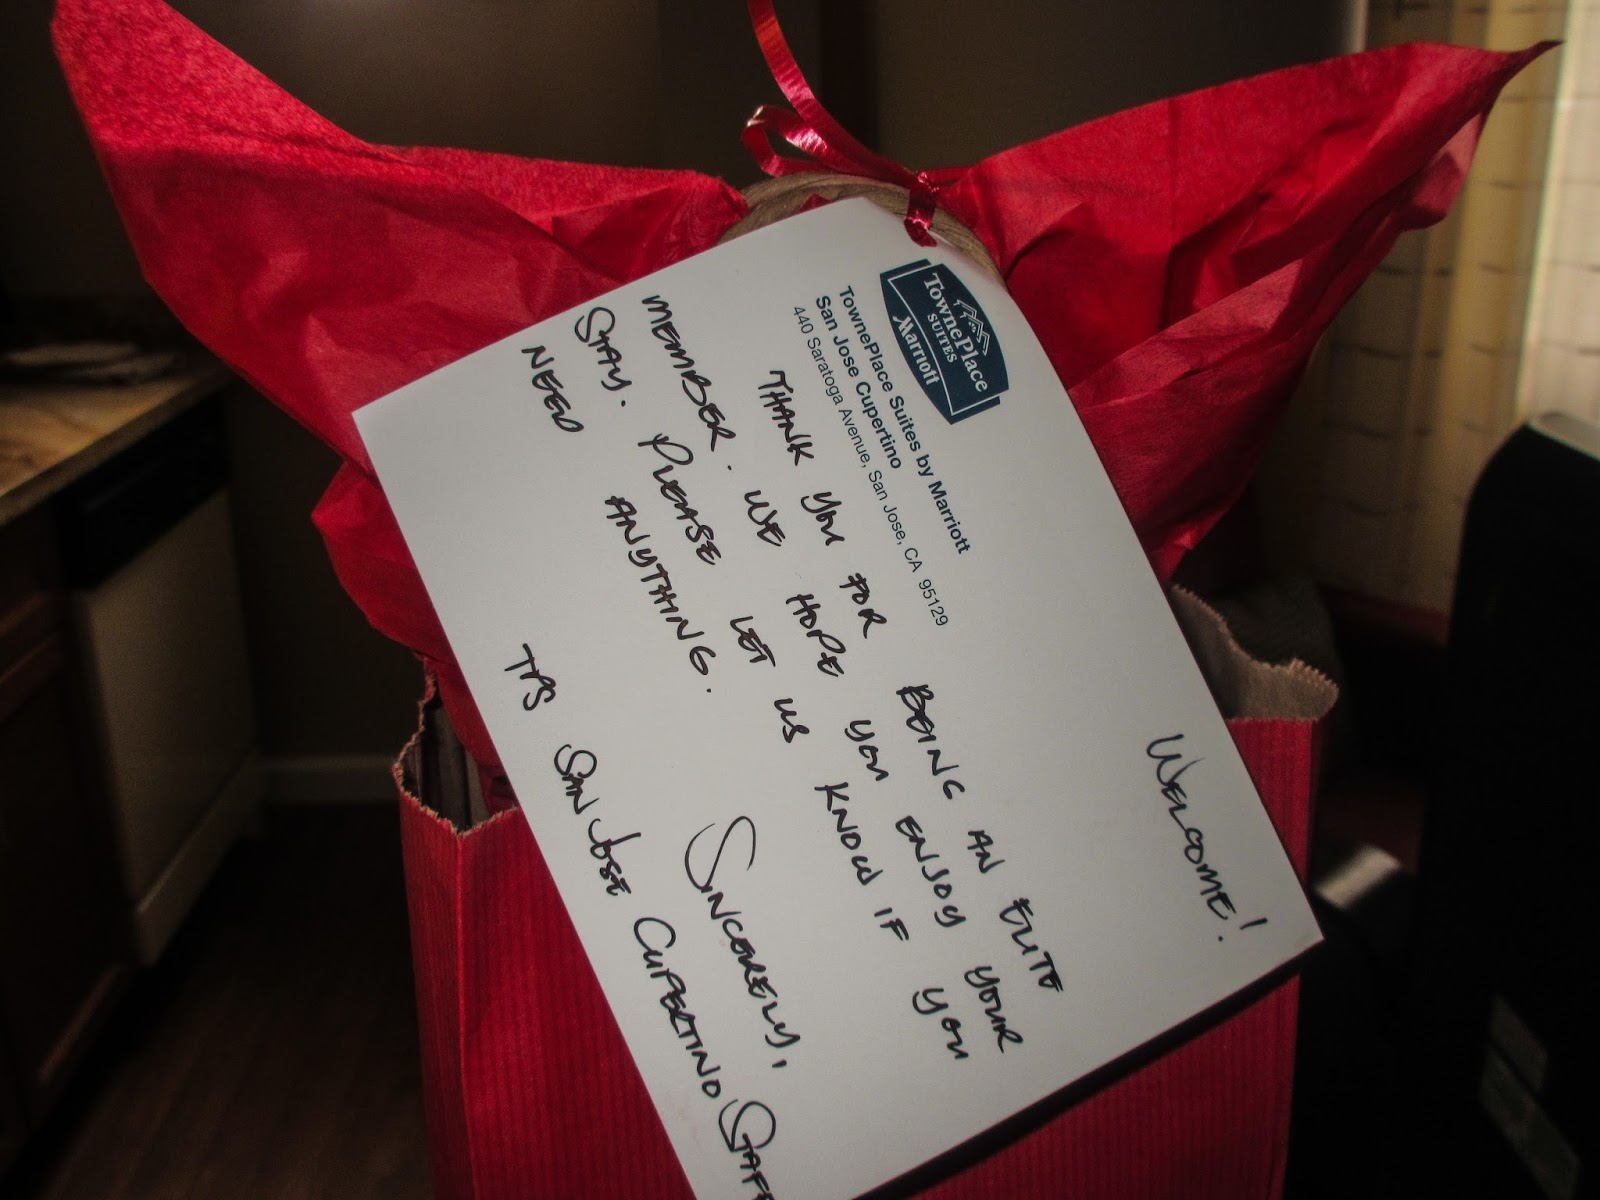 TownePlace
SUITES
Marriott
TownePlace Suites by Marriott
San Jose Cupertino
440 Saratoga Avenue, San Jose, CA 95129
WELCOME!
THANK YOU FOR BEING AN ELITE
MEMBER. WE HOPE YOU ENJOY YOUR
STAY. PLEASE LET US KNOW IF YOU
NEED ANYTHING.
SINCERELY,
TPS SAN JOSE CUPERTINO STAFF